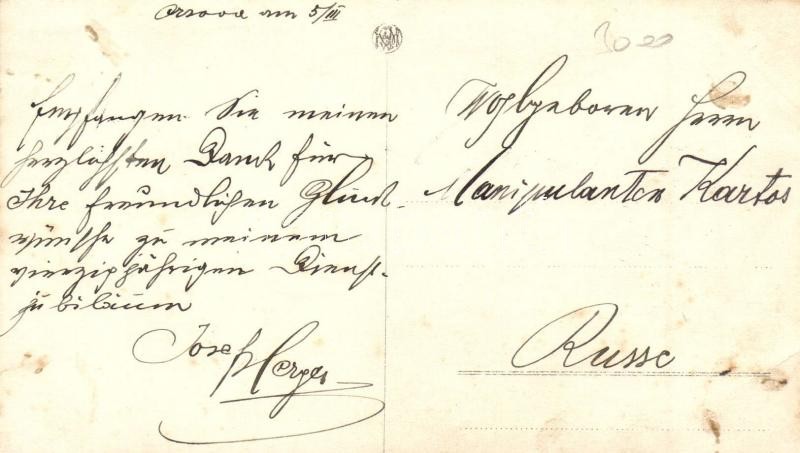 Orsova am 5/III
30 00
Empfangen Sie meinen
herzlichsten Dank für
Ihre freundlichen Glück-
wünsche zu meinem
vierzigjährigen Dienst-
jubiläum
Josef
Wohlgeboren Herrn
Manipulanten Kartos
Russe